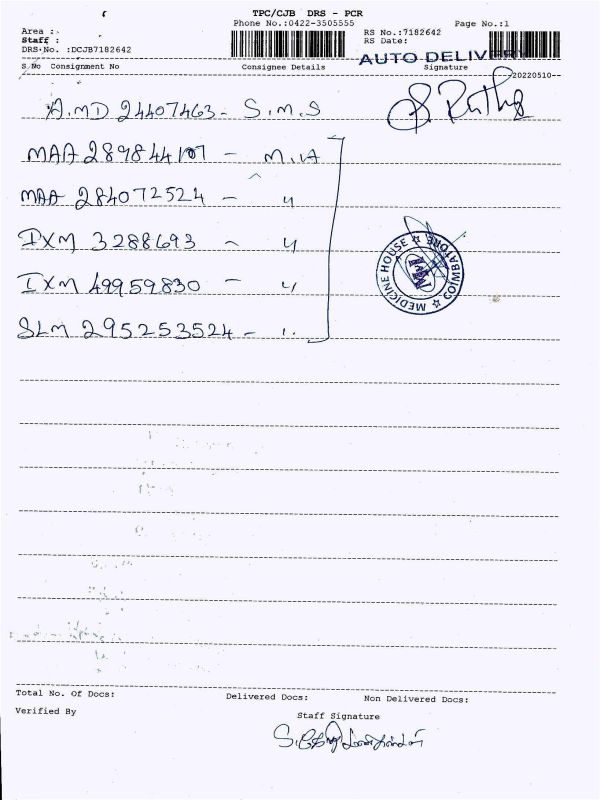 TPC/CJB DRS - PCR
Phone No.:0422-3505555 Page No.:1
Area : RS No.:7182642
Staff : RS Date:
DRS No. :DCJB7182642 AUTO DELIVERY
S.No Consignment No Consignee Details Signature
20220510
A.MD 24407463 - S.M.S
MAA 289844107 - M.A
MAA 284072524 - "
IXM 3288693 - "
IXM 49959830 - "
SLM 295253524 - "
MEDICINE HOUSE ☆ COIMBATORE ☆
Total No. Of Docs: Delivered Docs: Non Delivered Docs:
Verified By Staff Signature